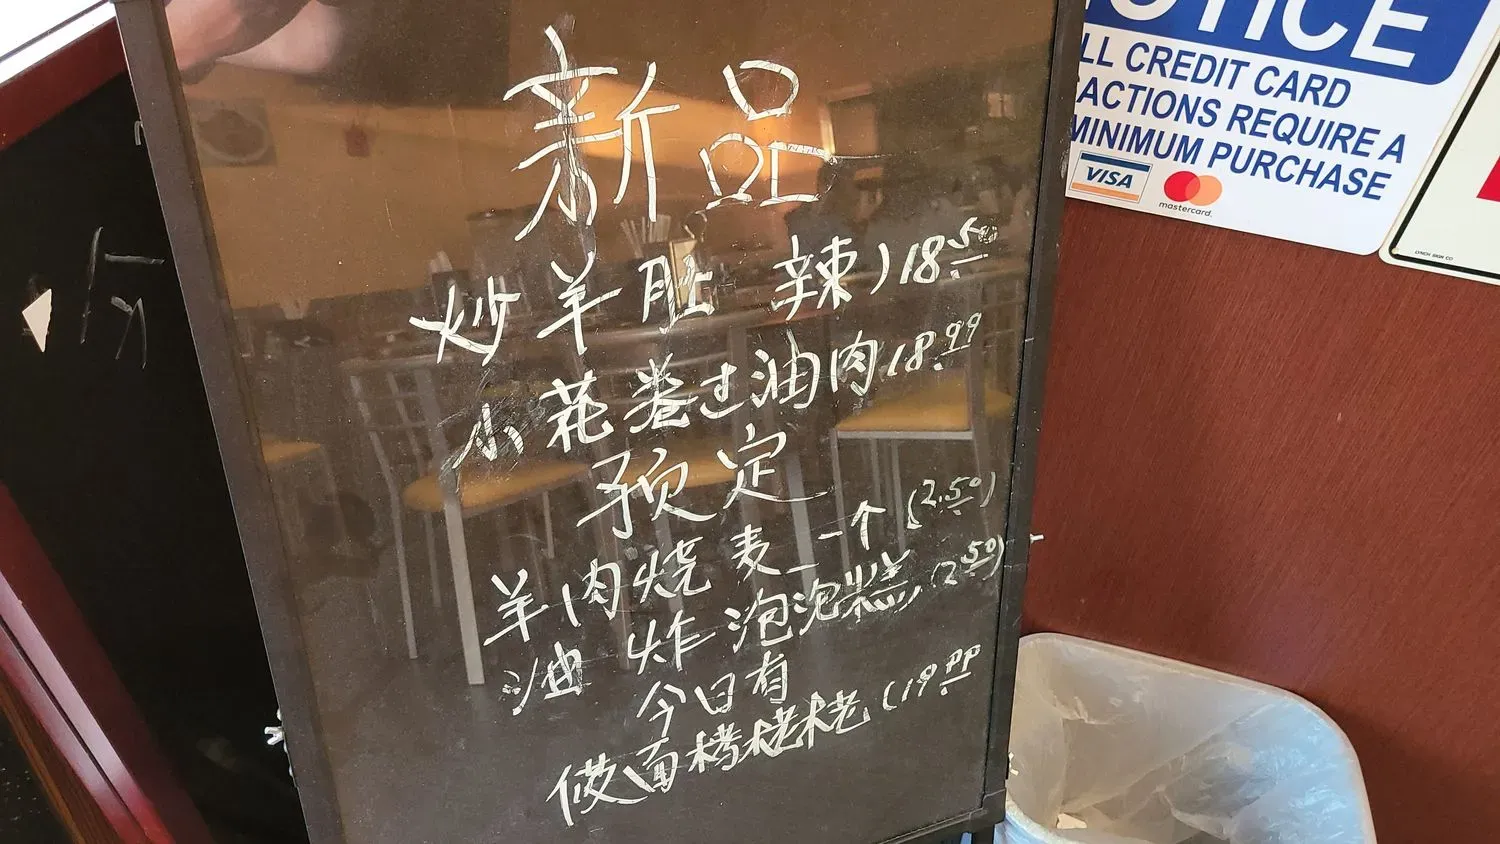 新品
炒羊肚 辣)18.50
小花卷过油肉18.99
预定
羊肉烧麦一个(2.50)
油炸泡泡糕(2.50)
今日有
莜面栲栳栳(19.99
NOTICE
LL CREDIT CARD
ACTIONS REQUIRE A
MINIMUM PURCHASE
VISA
mastercard.
LYNCH SIGN CO